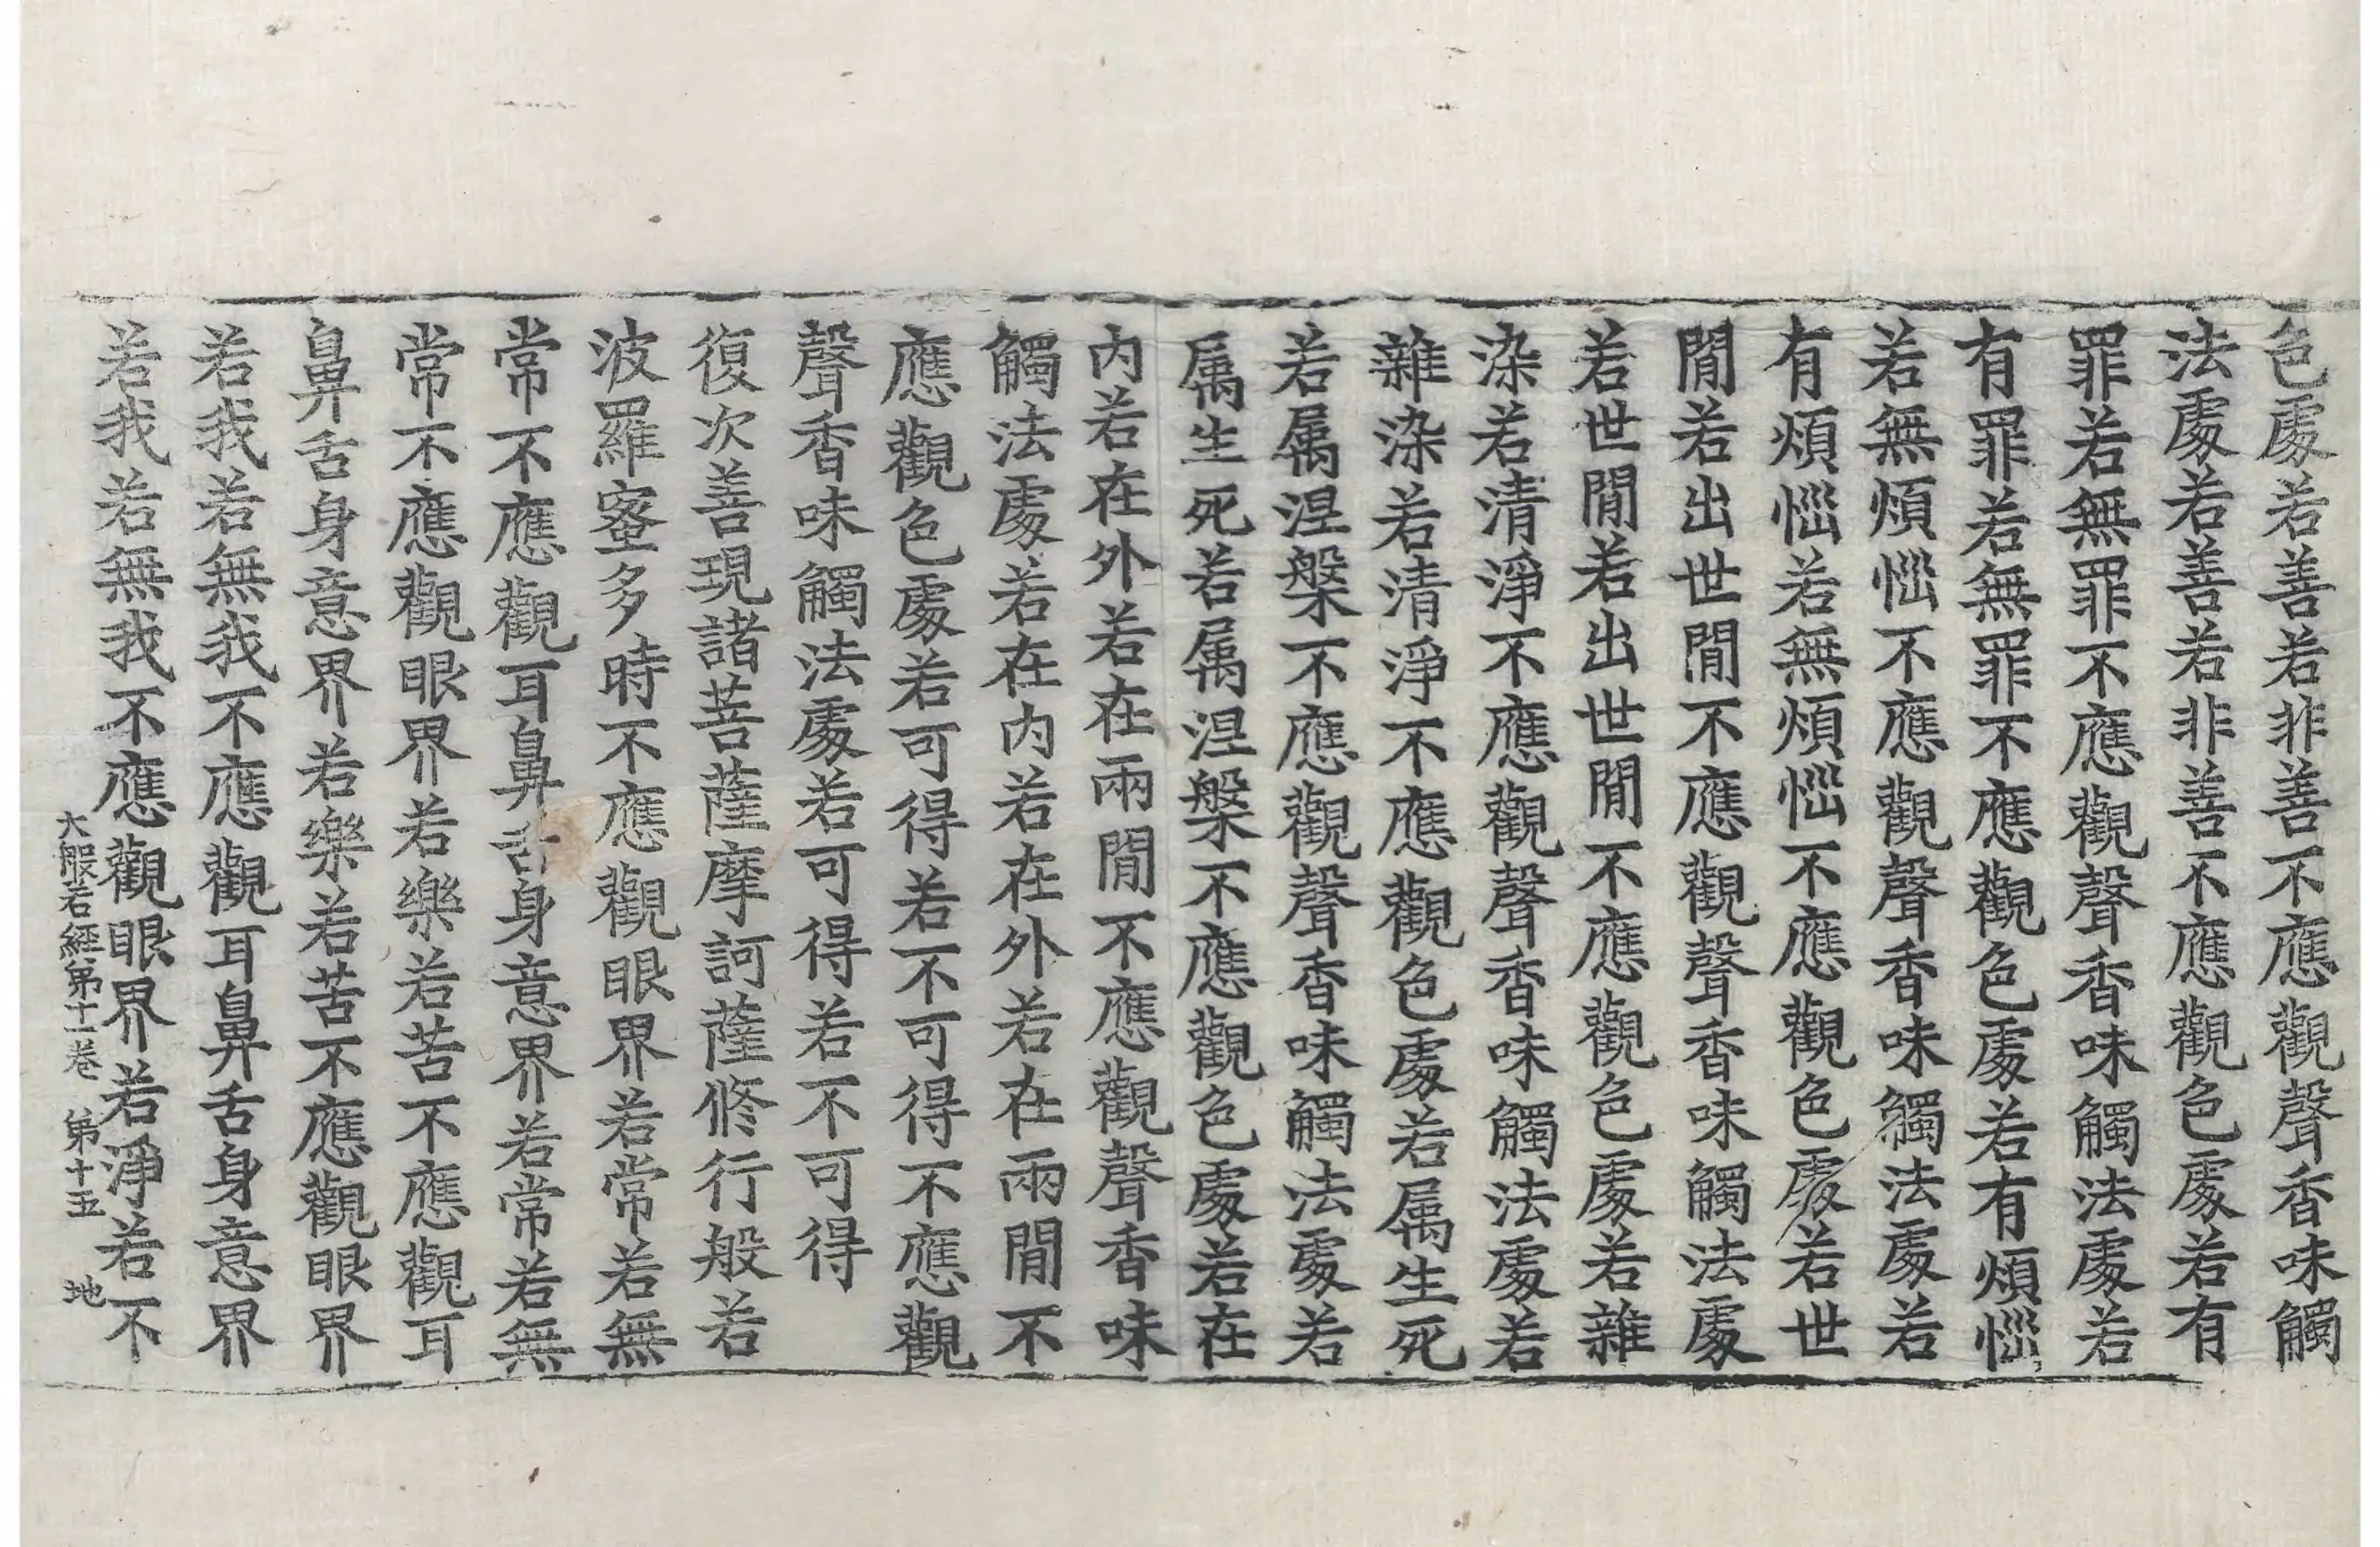 色處若善若非善不應觀聲香味觸
法處若善若非善不應觀色處若有
罪若無罪不應觀聲香味觸法處若
有罪若無罪不應觀色處若有煩惱
若無煩惱不應觀聲香味觸法處若
有煩惱若無煩惱不應觀色處若世
閒若出世閒不應觀聲香味觸法處
若世閒若出世閒不應觀色處若雜
染若清淨不應觀聲香味觸法處若
雜染若清淨不應觀色處若属生死
若属涅槃不應觀聲香味觸法處若
属生死若属涅槃不應觀色處若在
内若在外若在兩閒不應觀聲香味
觸法處若在内若在外若在兩閒不
應觀色處若可得若不可得不應觀
聲香味觸法處若可得若不可得
復次善現諸菩薩摩訶薩修行般若
波羅蜜多時不應觀眼界若常若無
常不應觀耳鼻舌身意界若常若無
常不應觀眼界若樂若苦不應觀耳
鼻舌身意界若樂若苦不應觀眼界
若我若無我不應觀耳鼻舌身意界
若我若無我不應觀眼界若淨若不
大般若經第十一卷 第十五 地